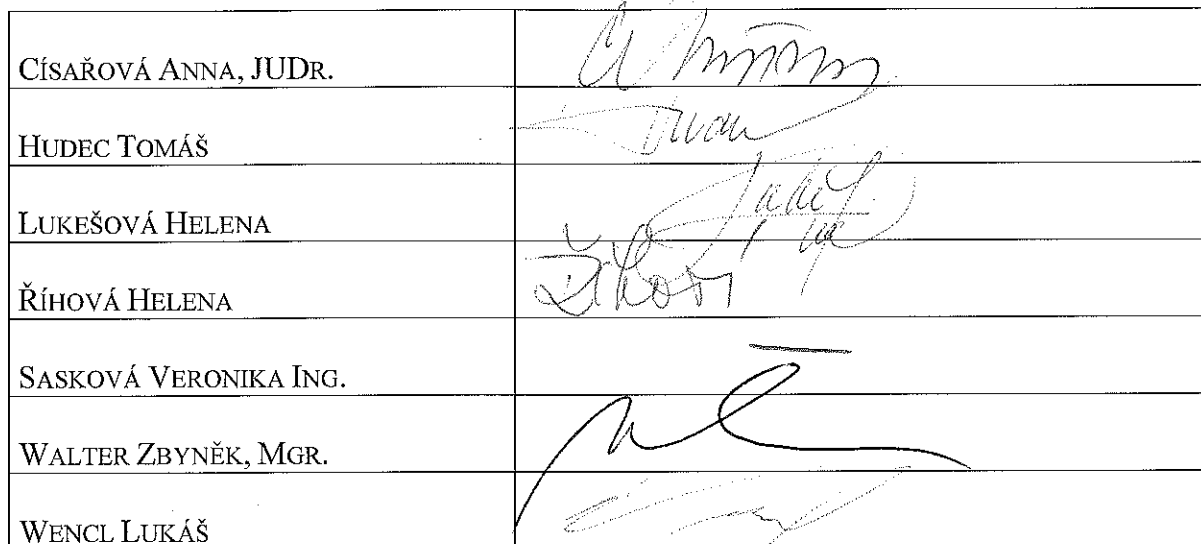 CÍSAŘOVÁ ANNA, JUDR.
HUDEC TOMÁŠ
LUKEŠOVÁ HELENA
ŘÍHOVÁ HELENA
Říhová
SASKOVÁ VERONIKA ING.
WALTER ZBYNĚK, MGR.
WENCL LUKÁŠ